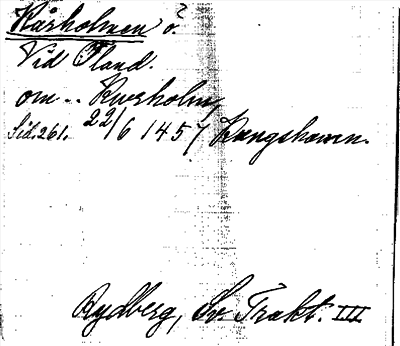 Kårholmen ö.
Vid Öland.
om .. Kwrholm,
Sid. 261. 22/6 1457 Kongshamn.
Rydberg, Sv. Trakt. III